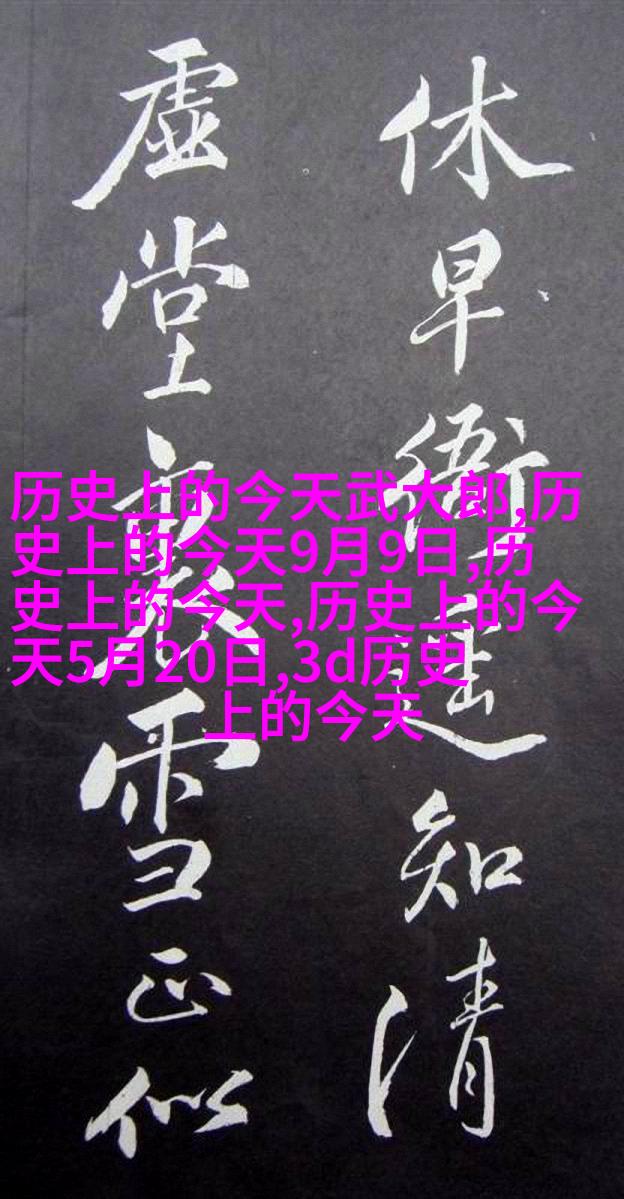 休早衙遥知清
虚堂雪正似
历史上的今天武大郎,历
史上的今天9月9日,历
史上的今天,历史上的今
天5月20日,3d历史
上的今天